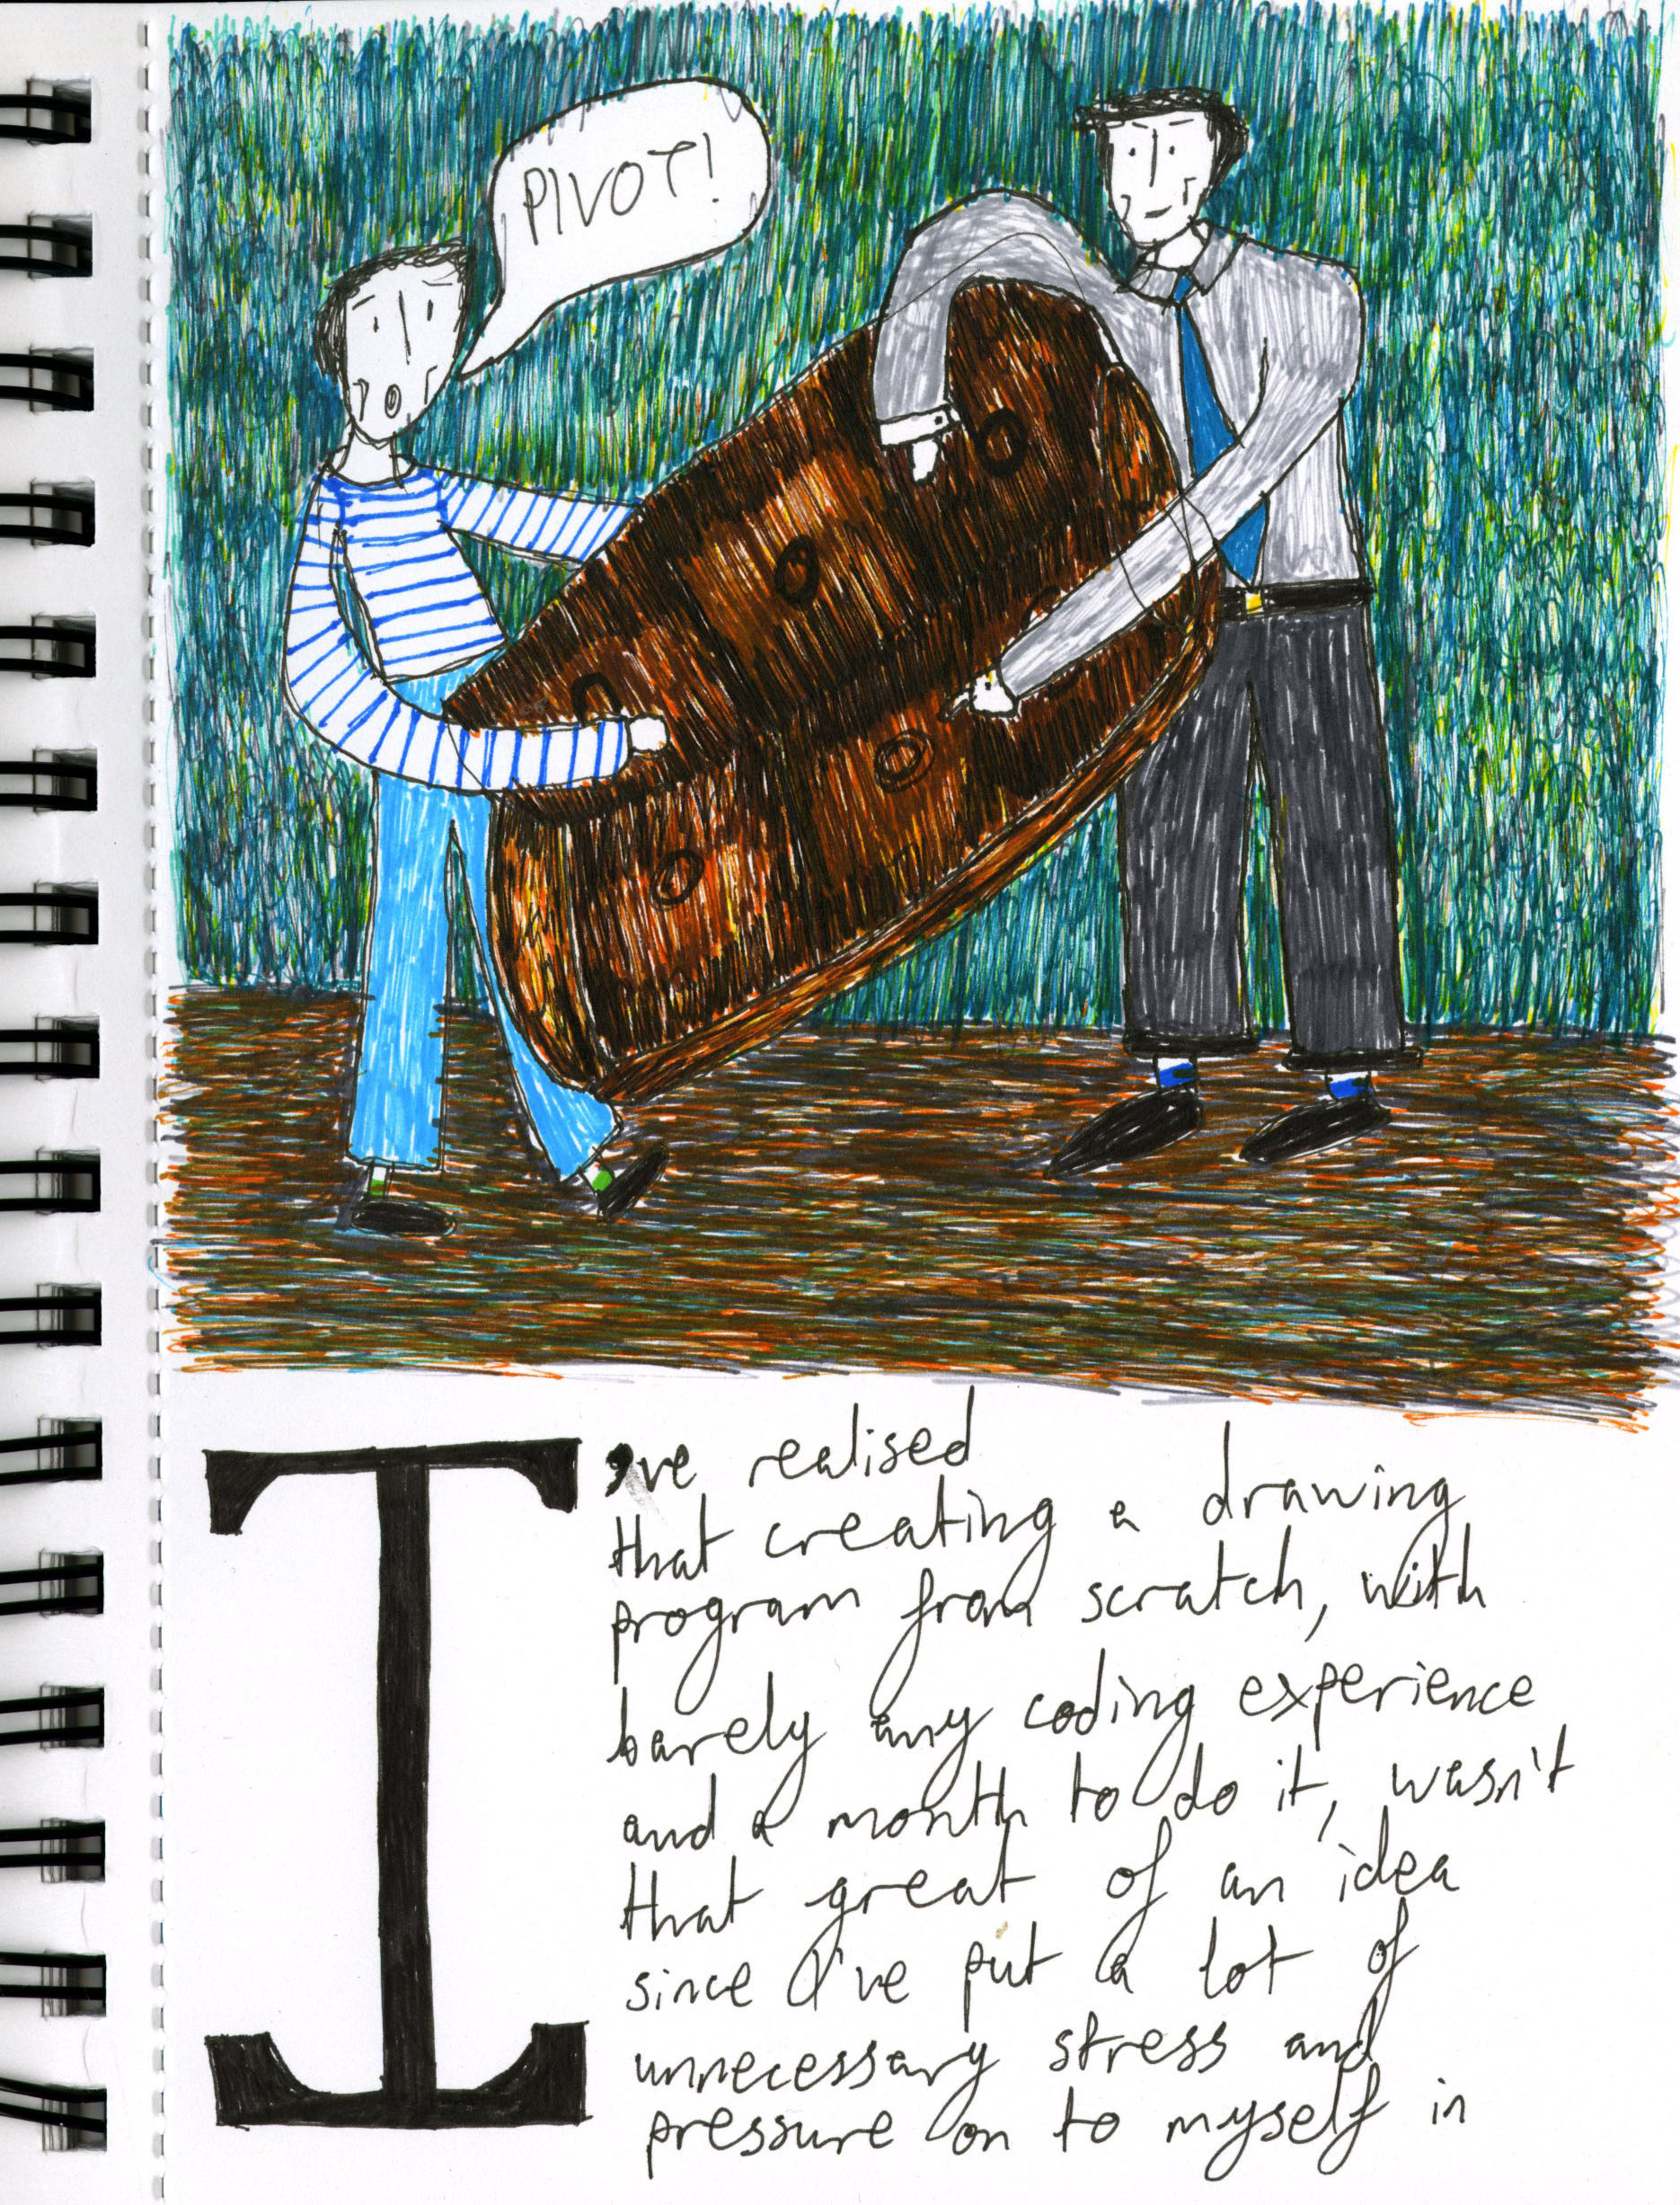 PIVOT!
I've realised
that creating a drawing
program from scratch, with
barely any coding experience
and a month to do it, wasn't
that great of an idea
since I've put a lot of
unnecessary stress and
pressure on to myself in